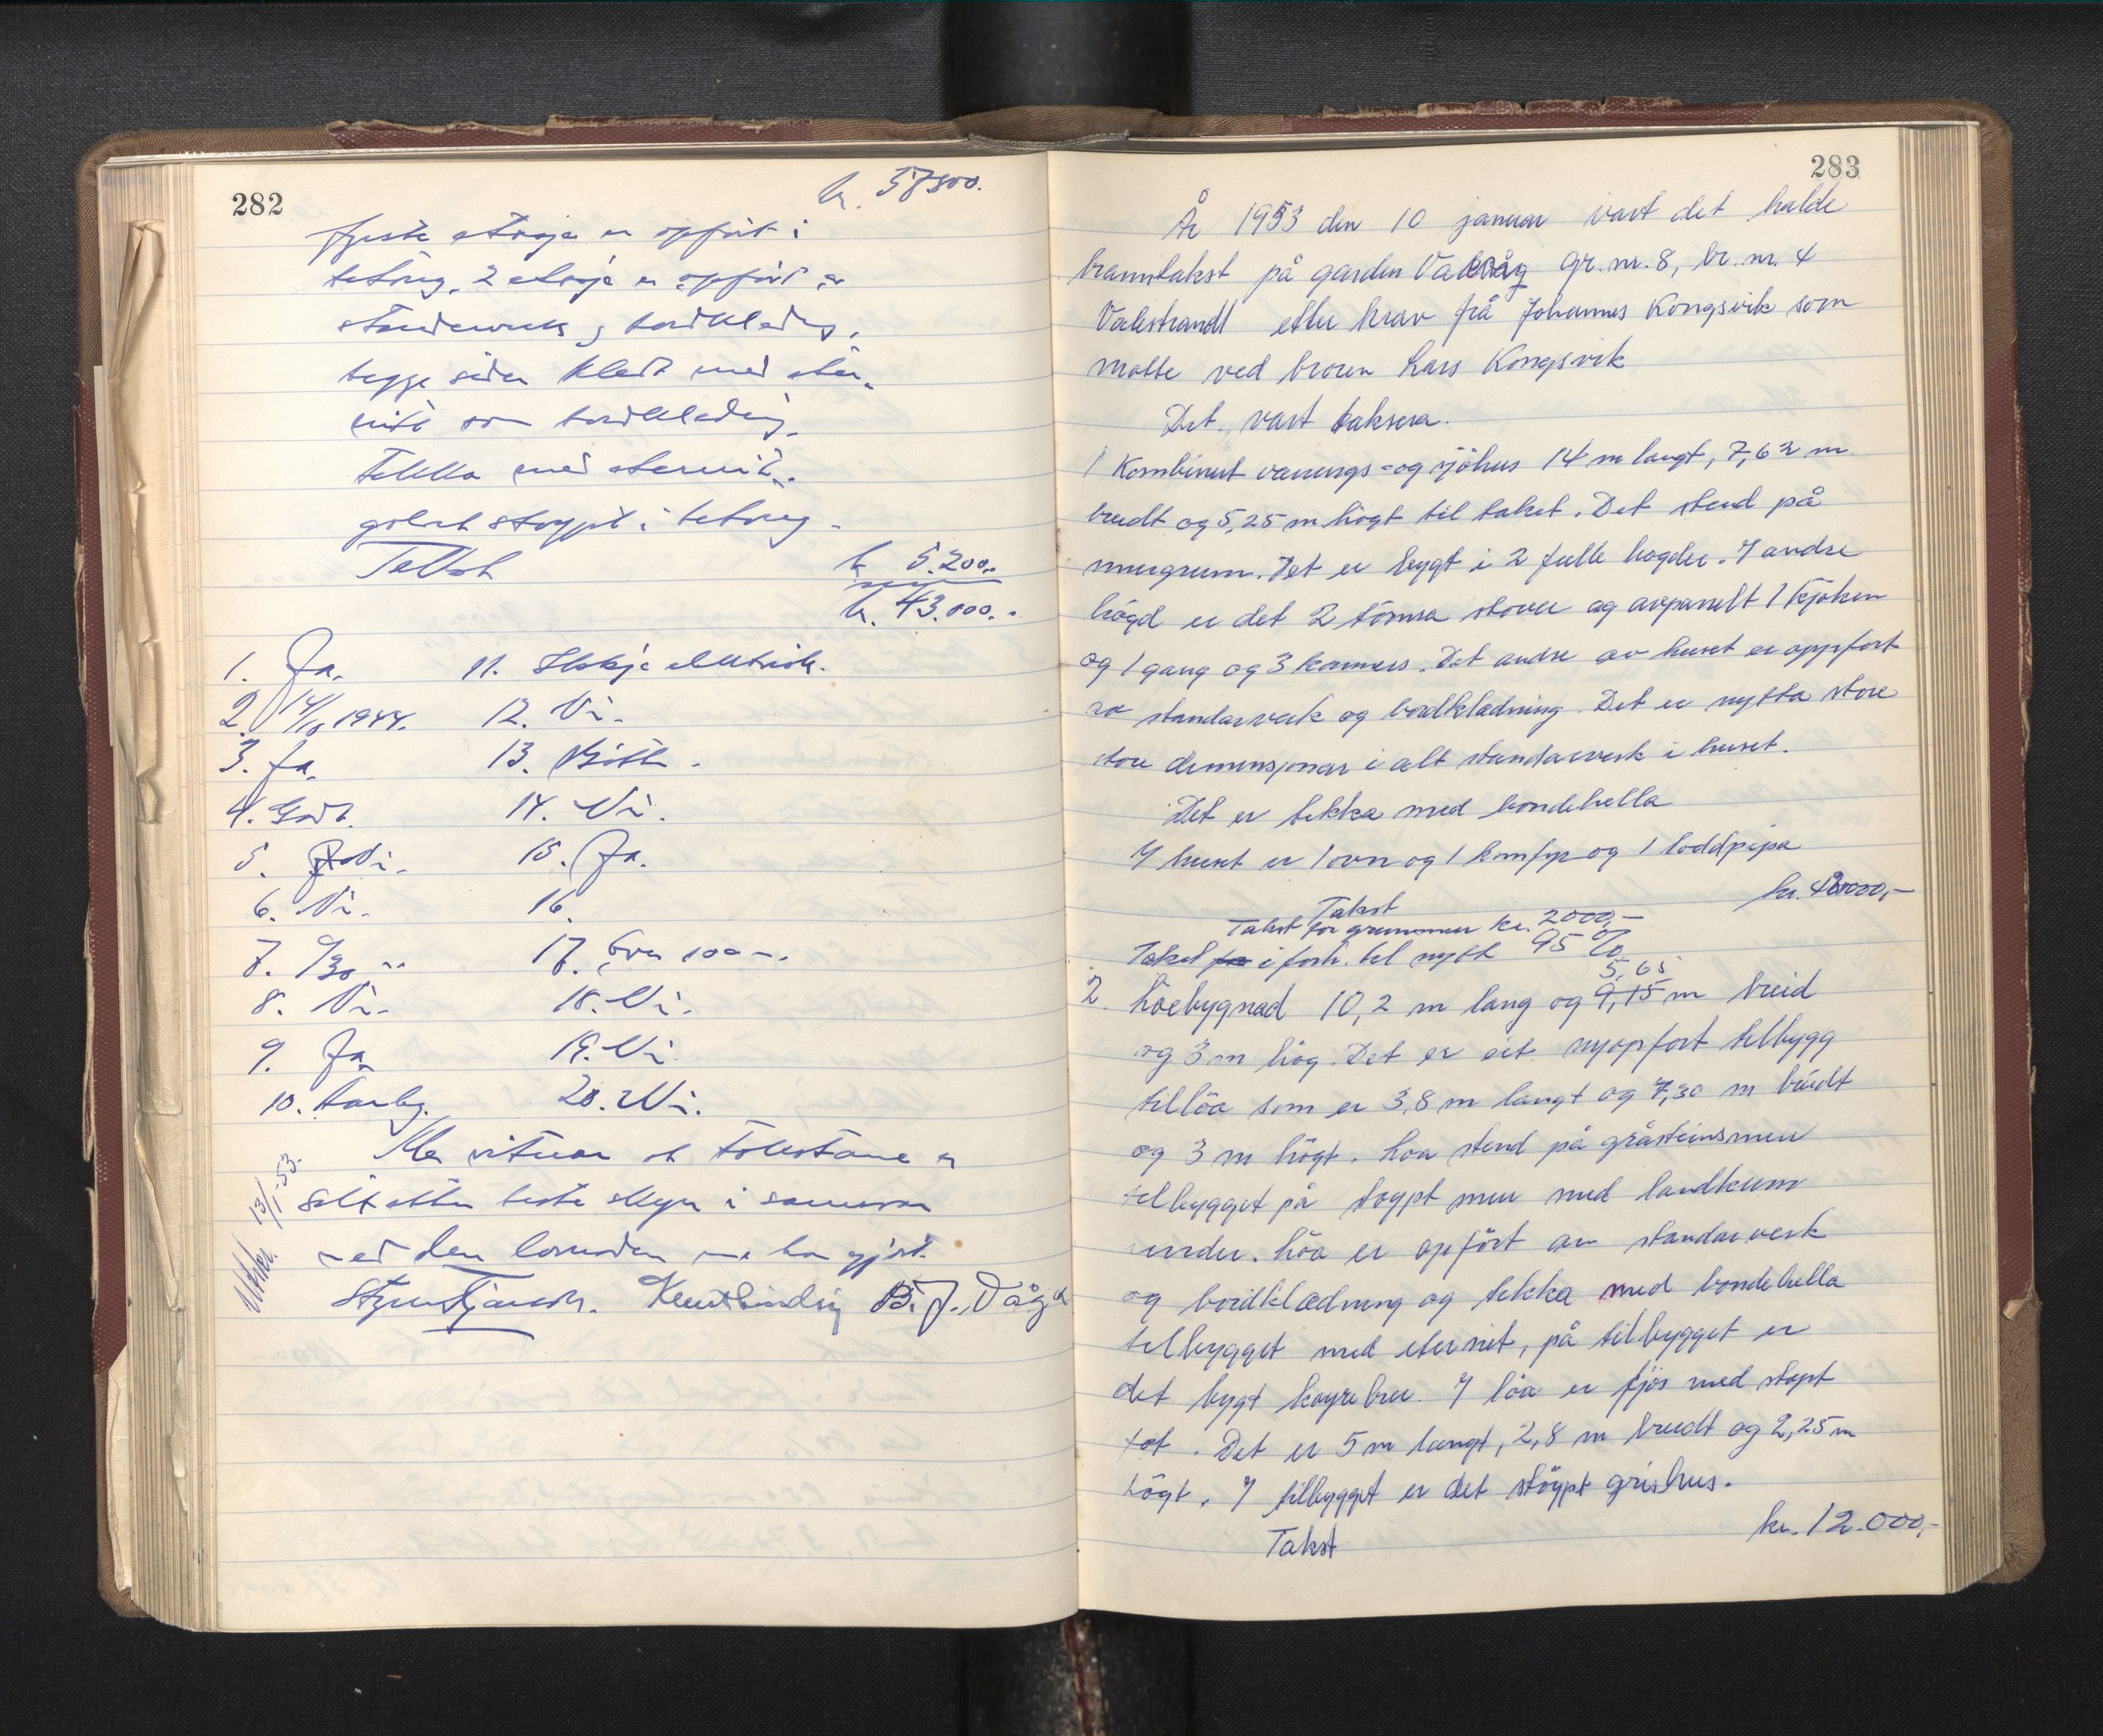 282
kr. 37800.
fyrste etasje er opført i
betong. 2 etasje er opført av
standerverk og bordkledn.
begge sider kledt med eter-
nitt som bordkledning.
Tekkt med eternit.
golvet støypt i betong.
Takst kr. 5.200.-
kr. 43.000.-
1. Ja. 11. elektrisk.
2. 1944. 12. Nei.
3. Ja. 13.
4. Godt. 14. Nei.
5. Nei. 15. Ja.
6. Nei. 16.
7. 1/30 17. Over 100 m.
8. Nei. 18. Nei.
9. Ja 19. Nei
10. 20. Nei.
Me vitnar at takstane er
sett etter beste skyn i samsvar
med den lovnaden me har gjort.
Utskr. 13/1-53.
B. J. Våge
283
År 1953 den 10 januar vart det halde
branntakst på garden Valvåg gr. nr. 8, br. nr. 4
Valestrandt etter krav frå Johannes Kongsvik som
møtte ved broren Lars Kongsvik
Det vart taksera.
1 Kombinert vaanings- og sjöhus 14 m langt, 7,62 m
breidt og 5,25 m högt til taket. Det stend på
murgrunn. Det er bygt i 2 fulle högder. I andre
högd er det 2 tömra stover og avpanelt 1 kjöken
og 1 gang og 3 kamers. Det andre av huset er oppfört
av standarverk og bordklædning. Det er nytta store
store dimensjonar i alt standarverk i huset.
Det er tekka med bondehella
I huset er 1 ovn og 1 komfyr og 1 loddpipa
Takst kr. 43000,-
Takst for grunnmur kr. 2000,-
Takst for i forh. til nytt 95 %
5,65
2. Löebygnad 10,2 m lang og 9,15 m breid
og 3 m hög. Det er eit nyopfört tilbygg
til löa som er 3,8 m langt og 7,30 m breidt
og 3 m högt. Löa stend på gråsteinsmur
tilbygget på stöypt mur med landkum
under. Löa er opfört av standarverk
og bordklædning og tekka med bondehella
tilbygget med eternit, på tilbygget er
det bygt köyrebru. I löa er fjös med stöpt
Det er 5 m langt, 2,8 m breidt og 2,25 m
högt. I tilbygget er det stöypt grishus.
Takst kr. 12.000,-